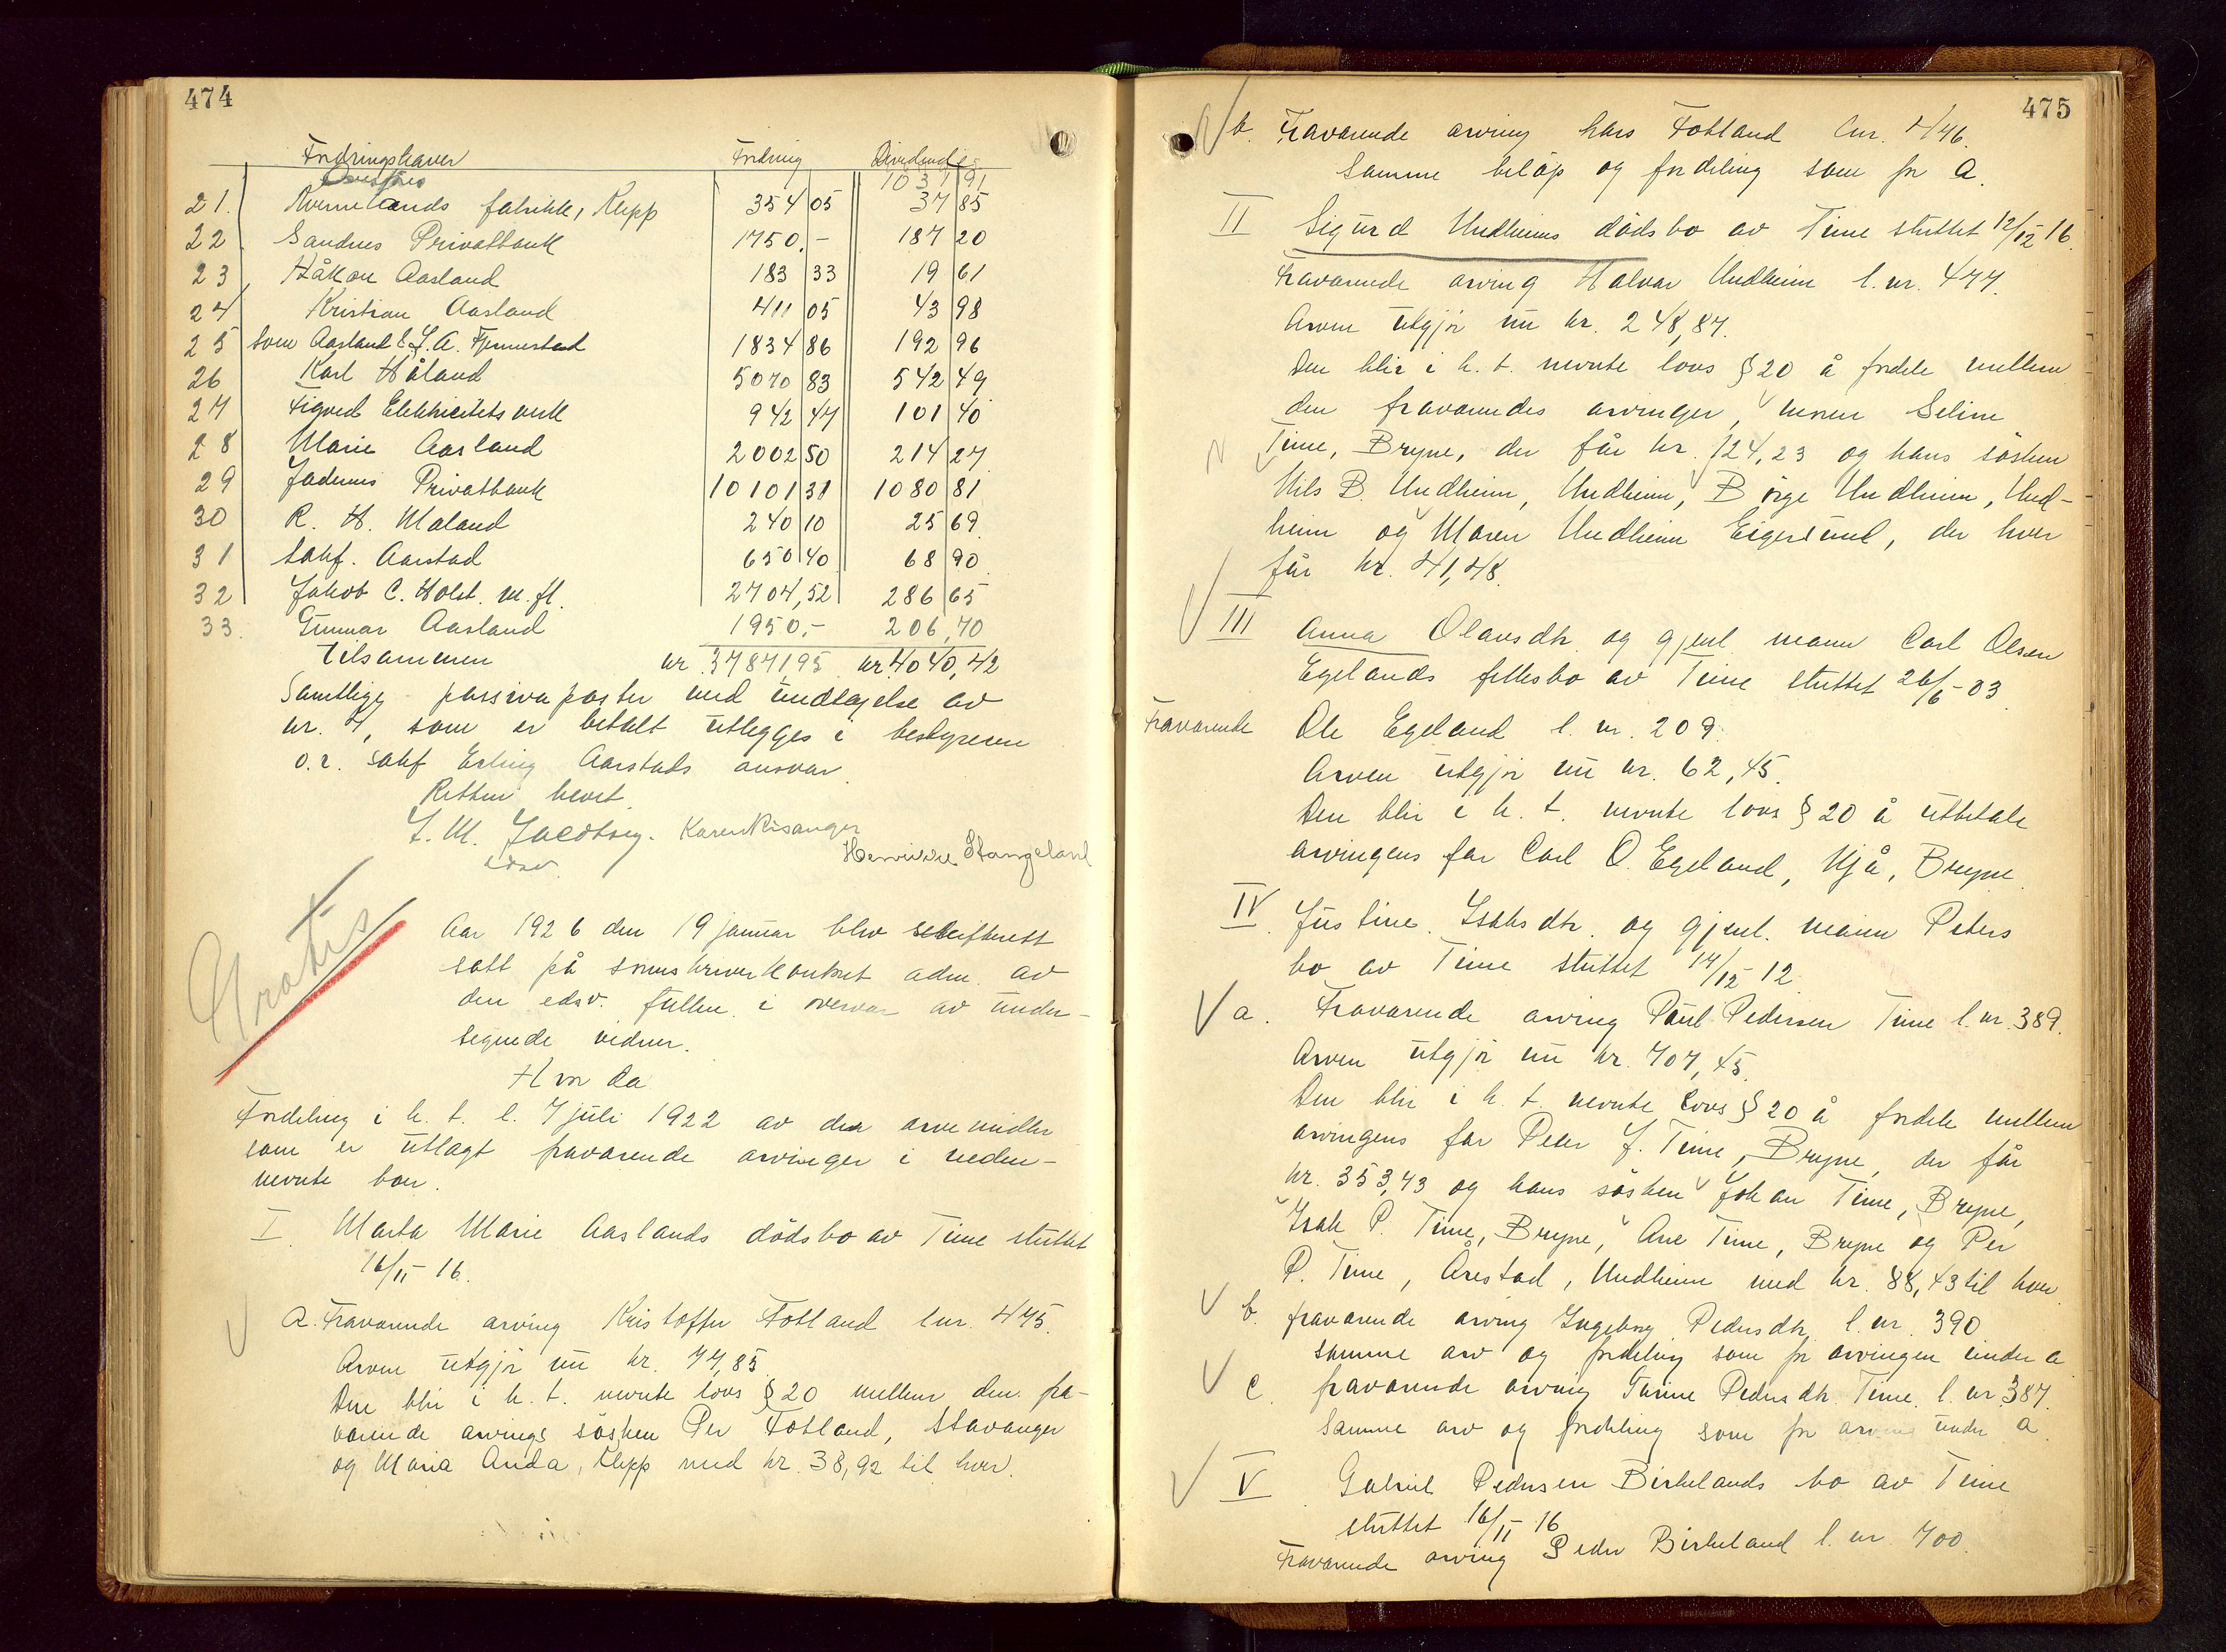 474
Fordringshaver Fordring Dividende
Overføres 1037 91
21. Kvernelands fabrikk, Klepp 354 05 37 85
22. Sandnes Privatbank 1750,- 187 20
23, Håkon Aasland 183 33 19 61
24 Kristian Aasland 411 05 43 98
25 Sven Aasland & J. A. Fjermestad 1834 86 192 96
26 Karl Håland 5070 83 542 49
27 Figved Elektricitetsverk 942 47 101 40
28 Marie Aasland 2002 50 214 27
29 Jæderens Privatbank 10101 31 1080 81
30 R. H. Maland 240 10 25 69
31 Sakf. Aarstad 650 40 68 90
32 Jakob C. Holst. m. fl. 2704,52 286 65
33. Gunnar Aasland 1950,- 206,70
tilsammen kr. 37871,95 kr. 4040,42
Samtlige passivaposter med undtagelse av
nr. 7, som er betalt utlegges i bestyreren
o.r. sakf Erling Aarstads ansvar.
Retten hevet.
J. M. Jacobsen. Karen Risanger
edsv. Henrikke Stangeland
Gratis
Aar 1926 den 19 januar blev skifterett
satt på sorenskriverkontoret adm. av
den edsv. fullm. i overvær av under-
tegnede vidner.
Hvor da
Fordeling i h. t. l. 7 juli 1922 av den arvemidler
som er utlagt fraværende arvinger i neden-
nevnte boer.
I. Marta Marie Aaslands dødsbo av Time sluttet
16/11-16.
a. Fraværende arving Kristoffer Fotland lnr. 475.
Arven utgjør nu kr. 77,85.
Den blir i h. t. nevnte lovs § 20 mellem den fra-
værende arvings søsken Per Fotland, Stavanger
og Maria Anda, Klepp med kr. 38,92 til hver.
475
b. Fraværende arving Lars Fotland lnr. 476.
Samme beløp og fordeling som for a.
II Sigurd Undheims dødsbo av Time sluttet 12/12 16.
Fraværende arving Halvar Undheim l. nr. 477.
Arven utgjør nu kr. 248,87.
Den blir i h. t. nevnte lovs § 20 å fordele mellem
den fraværendes arvinger, moren Seline
Time, Bryne, der får kr. 124,23 og hans søsken
Nils B. Undheim, Undheim, Børge Undheim, Und-
heim og Maren Undheim Eigersund, der hver
får kr. 41,48.
III Anna Olausdtr. og gjenl. mann Carl Olsen
Egelands fellesbo av Time sluttet 26/6-03.
Fraværende Ole Egeland l. nr. 209.
Arven utgjør nu kr. 62,45.
Den blir i h. t. nevnte lovs § 20 å utbetale
arvingens far Carl O. Egeland, Njå, Bryne.
IV. Justine Isaksdtr. og gjenl. mann Peters
bo av Time sluttet 14/12-12.
a. Fraværende arving Paul Pedersen Time l. nr. 389.
Arven utgjør nu kr. 707,45.
Den blir i h. t. nevnte lovs § 20 å fordele mellem
arvingens far Peder J. Time, Bryne, der får
kr. 353,73 og hans søsken Johan Time, Bryne,
Isak P. Time, Bryne, Ane Time, Bryne og Per
P. Time, Årestad, Undheim med kr. 88,43 til hver.
b. fraværende arving Ingeborg Pedersdtr. l. nr. 390
samme arv og fordeling som for arvingen under a
c. fraværende arving Turine Pedersdtr. Time. l. nr. 387.
Samme arv og fordeling som for arving under a.
V Gabriel Pedersen Birkelands bo av Time
sluttet 16/11-16
Fraværende arving Peder Birkeland l. nr. 700.